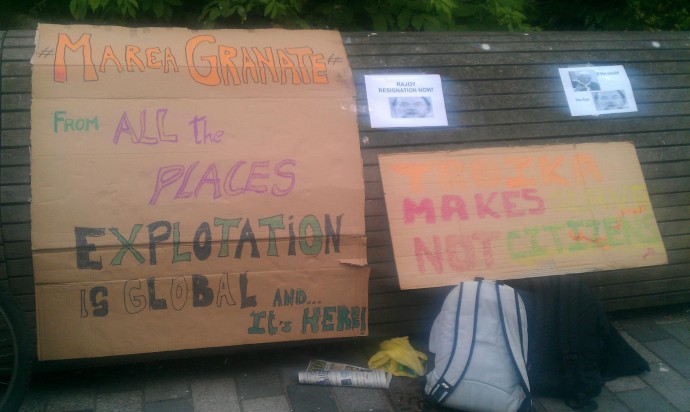 #MAREA GRANATE#
FROM ALL the
PLACES
EXPLOTATION
IS GLOBAL AND...
It's HERE!
RAJOY
RESIGNATION NOW!
TROIKA
MAKES
NOT CITIZENS